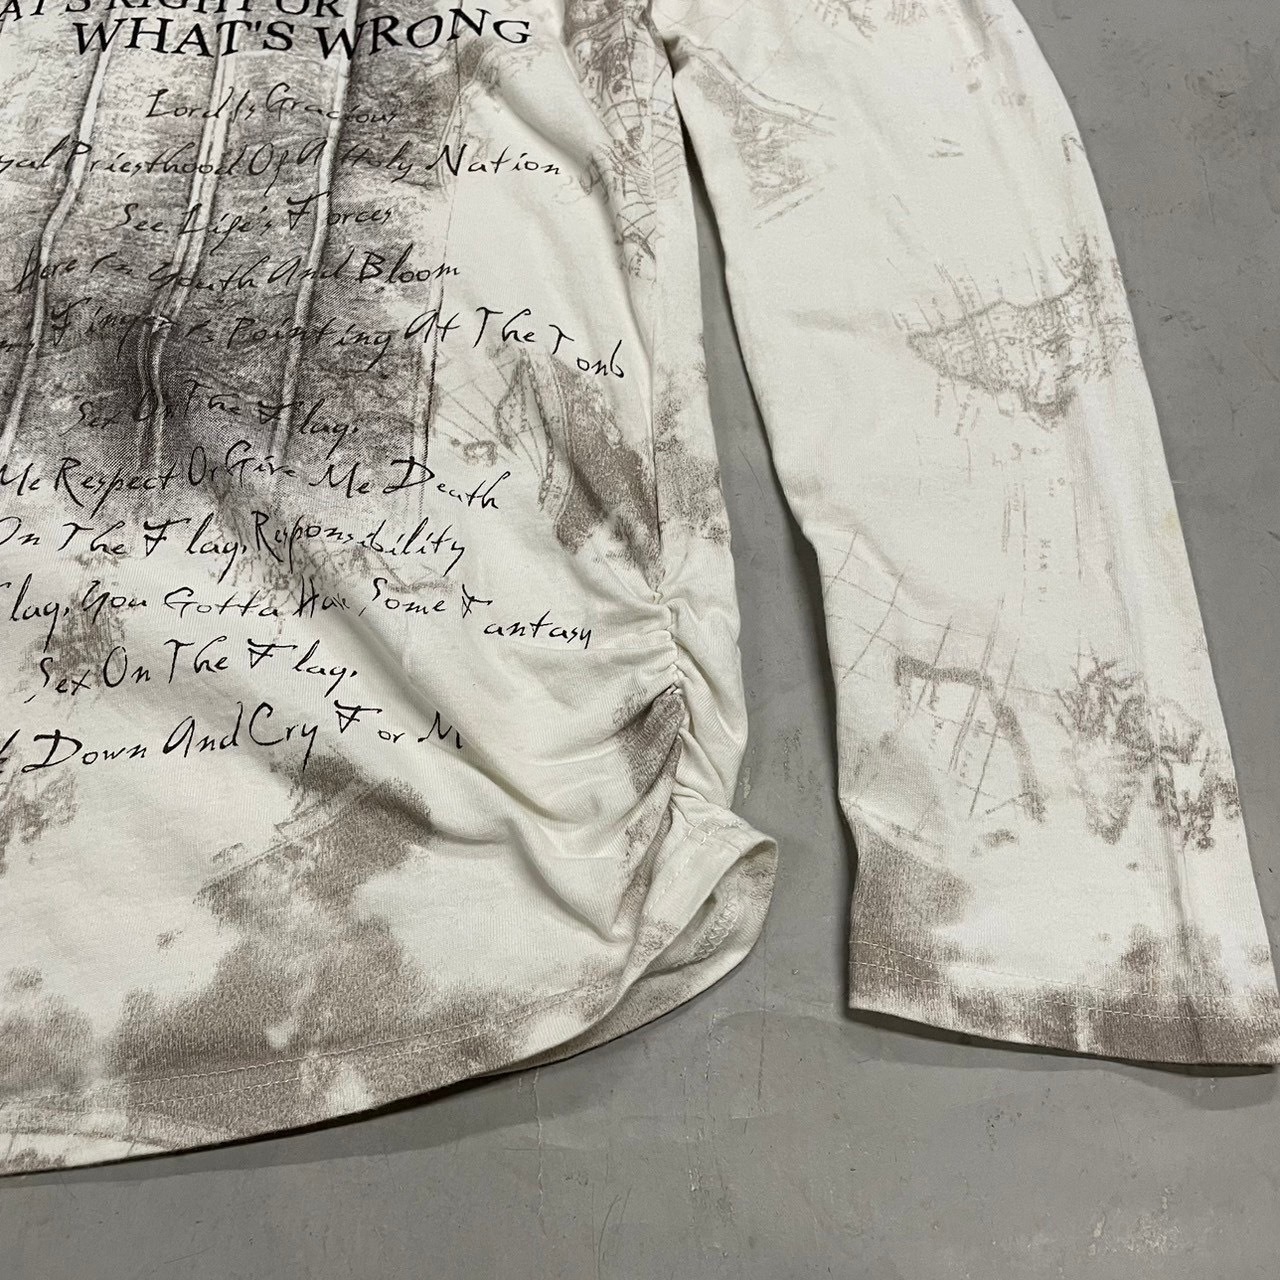 WHAT'S RIGHT OR
WHAT'S WRONG
Lord Is Gracious
Priesthood Of A Holy Nation
See Life's Forces
Youth And Bloom
Pointing At The Tomb
Sex On The Flag.
Me Respect Or Give Me Death
On The Flag. Responsibility
Flag. You Gotta Have Some Fantasy
Sex On The Flag.
Down And Cry For M